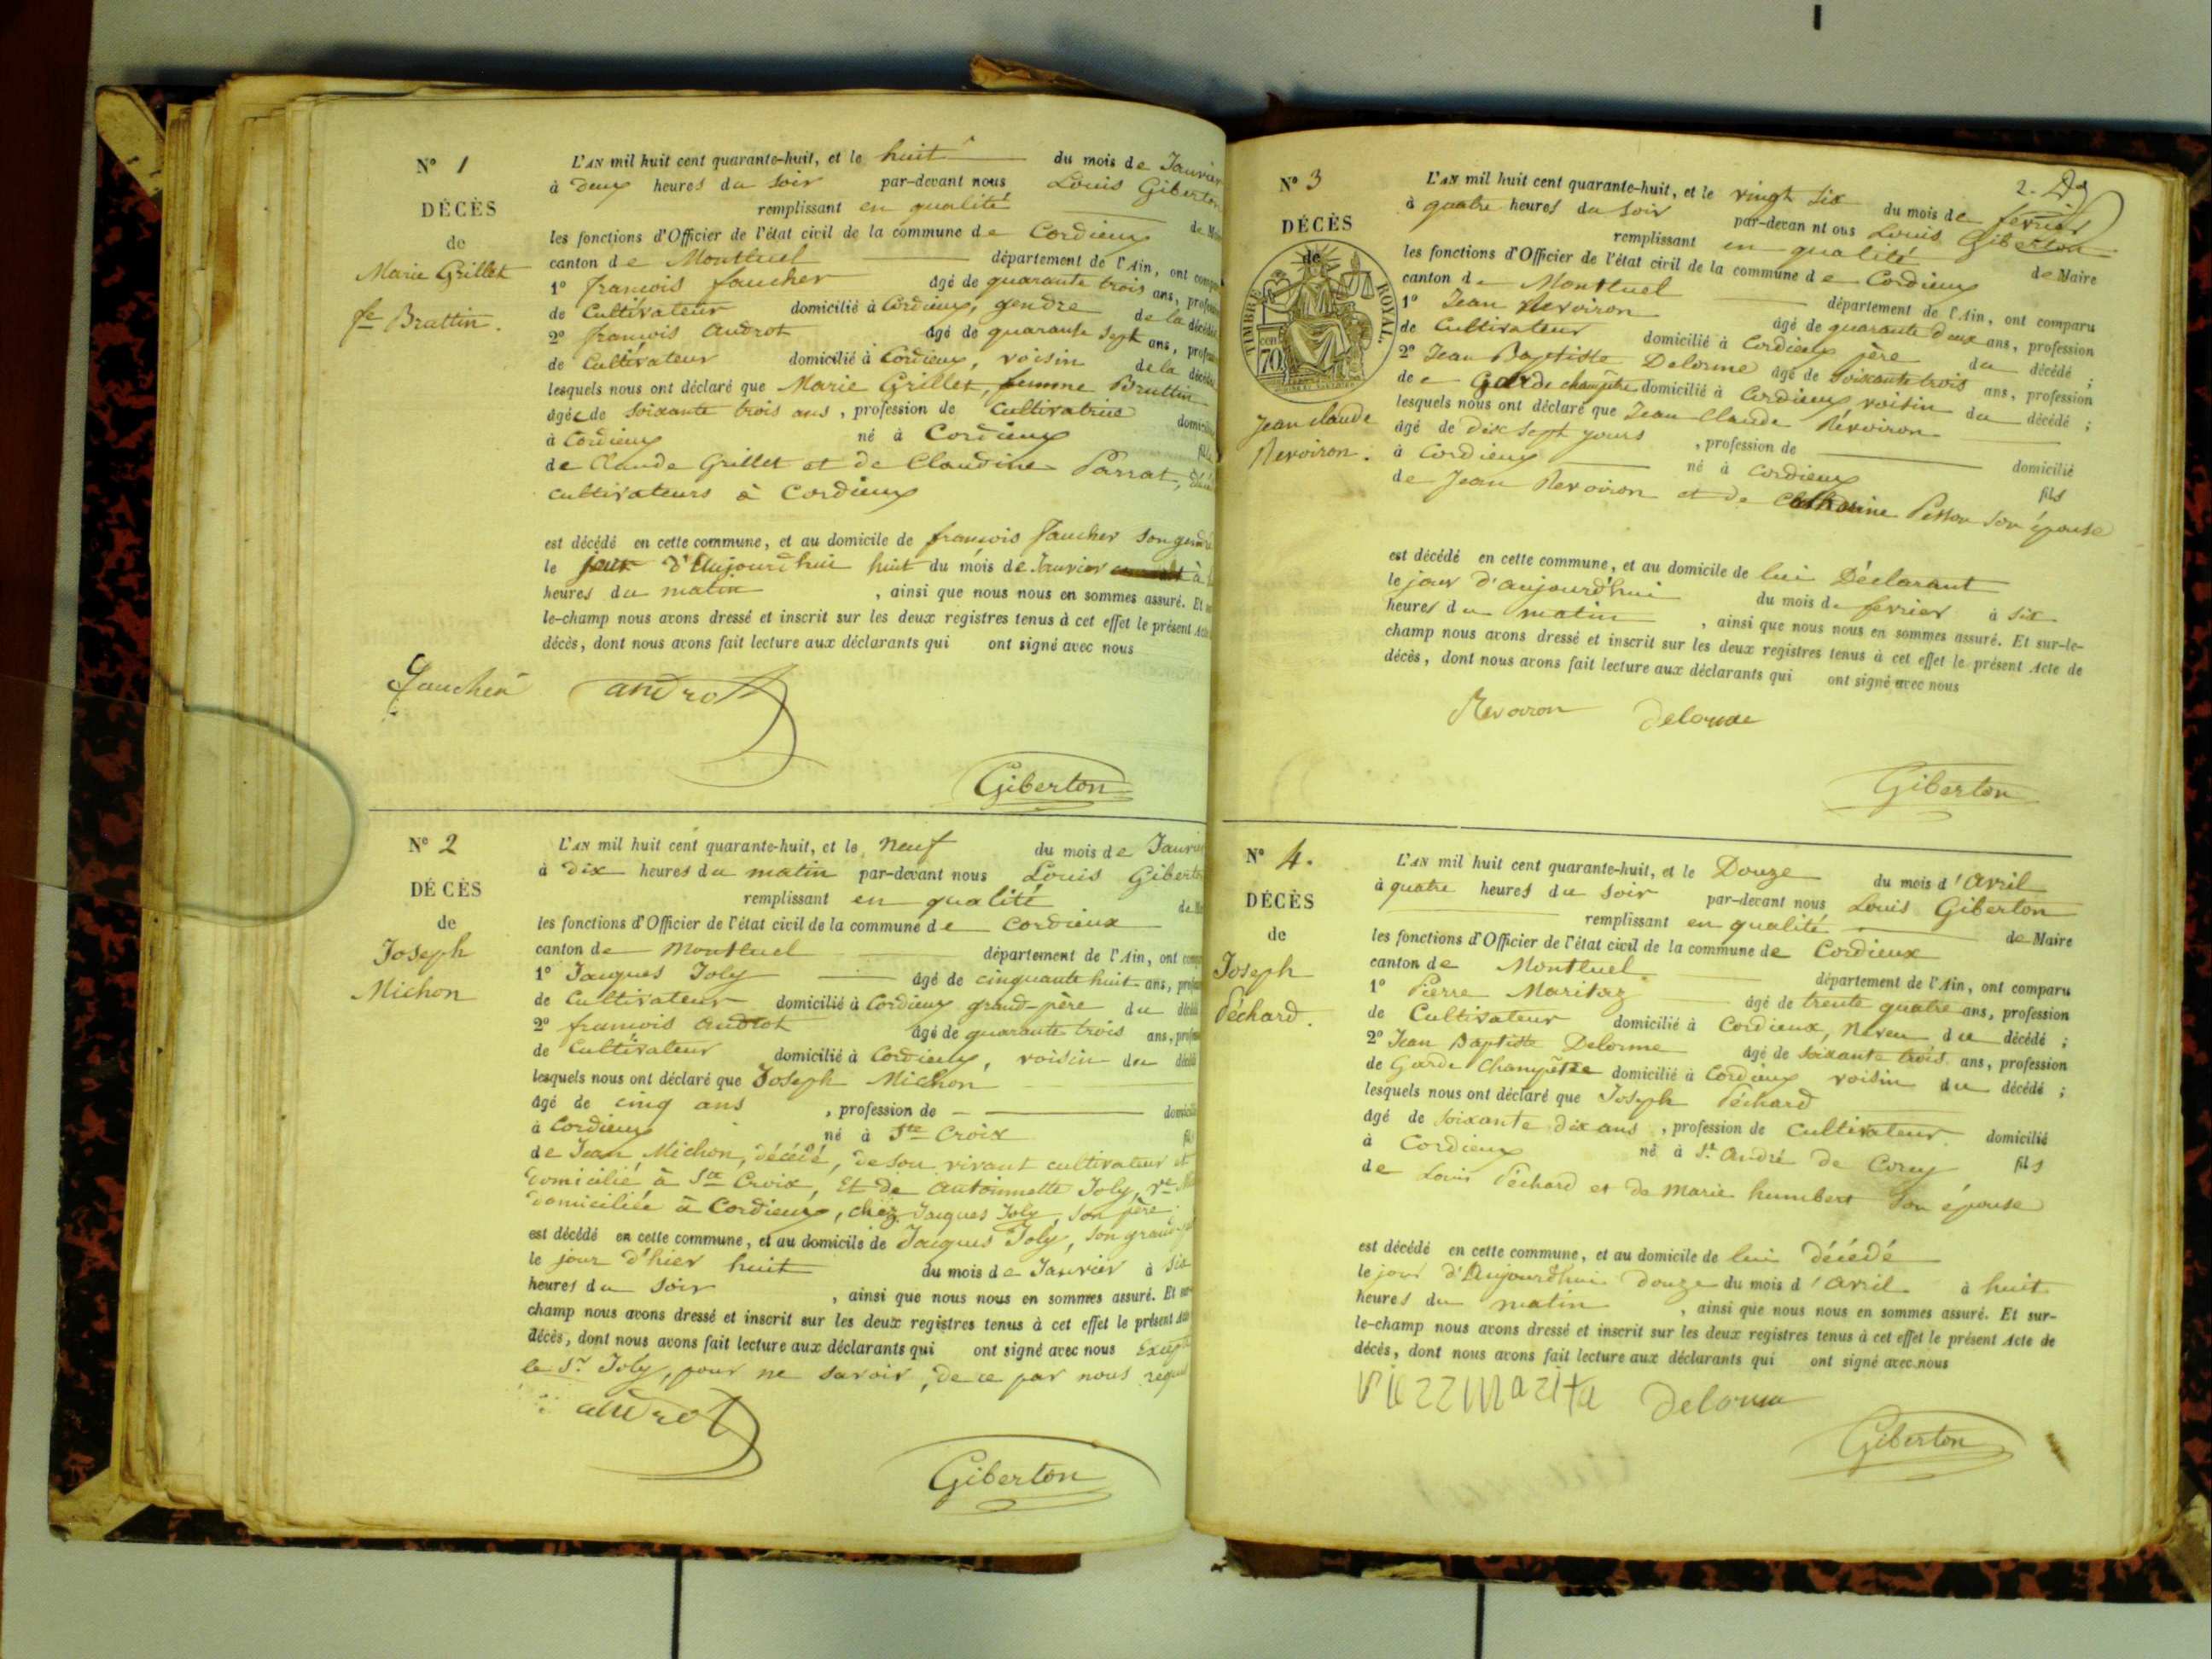 N° 1
DÉCÈS
de
Marie Grillet
fe Bruttin.
L'AN mil huit cent quarante-huit, et le huit du mois de Janvier
à deux heures du soir par-devant nous Louis Giberton
remplissant en qualité de
les fonctions d'Officier de l'état civil de la commune de Cordieux
canton de Montluel département de l'Ain, ont
1° françois faucher âgé de quarante trois ans,
de Cultivateur domicilié à Cordieux, gendre de la
2° françois Audrot âgé de quarante sept ans,
de Cultivateur domicilié à Cordieux, voisin de la
lesquels nous ont déclaré que Marie Grillet, femme Bruttin
âgée de soixante trois ans, profession de Cultivatrice
à Cordieux né à Cordieux
de Claude Grillet et de Claudine Parrat,
cultivateurs à Cordieux
est décédé en cette commune, et au domicile de françois faucher son gendre
le d'Aujourd'hui huit du mois de Janvier à
heures du matin, ainsi que nous nous en sommes assuré. Et
le-champ nous avons dressé et inscrit sur les deux registres tenus à cet effet le présent Acte
décès, dont nous avons fait lecture aux déclarants qui ont signé avec nous
faucher androt
Giberton
N° 2
DÉCÈS
de
Joseph
Michon
L'AN mil huit cent quarante-huit, et le neuf du mois de Janvier
à dix heures du matin par-devant nous Louis Giberton
remplissant en qualité de
les fonctions d'Officier de l'état civil de la commune de Cordieux
canton de Montluel département de l'Ain, ont
1° Jacques Joly âgé de cinquante huit ans,
de Cultivateur domicilié à Cordieux grand-père du
2° françois Audrot âgé de quarante trois ans,
de Cultivateur domicilié à Cordieux, voisin du
lesquels nous ont déclaré que Joseph Michon
âgé de cinq ans, profession de
à Cordieux né à Ste Croix
de Jean Michon, décédé, de son vivant cultivateur et
domicilié à Ste Croix, Et de Antoinette Joly, ve
domiciliée à Cordieux, chez Jacques Joly, son père;
est décédé en cette commune, et au domicile de Jacques Joly, son grand-
le jour d'hier huit du mois de Janvier à six
heures du soir, ainsi que nous nous en sommes assuré. Et sur
champ nous avons dressé et inscrit sur les deux registres tenus à cet effet le présent Acte
décès, dont nous avons fait lecture aux déclarants qui ont signé avec nous Excepté
le Sr Joly, pour ne savoir, de ce par nous requis
androt
Giberton
2.
N° 3
DÉCÈS
de
TIMBRE ROYAL.
70
Jean claude
Revoiron.
L'AN mil huit cent quarante-huit, et le vingt six du mois de fevrier
à quatre heures du soir par-devan nt ous Louis Giberton
remplissant en qualité de Maire
les fonctions d'Officier de l'état civil de la commune de Cordieux
canton de Montluel département de l'Ain, ont comparu
1° Jean Revoiron âgé de quarante deux ans, profession
de Cultivateur domicilié à Cordieux père du décédé;
2° Jean Baptiste Delorme âgé de soixante trois ans, profession
de Garde champêtre domicilié à Cordieux voisin du décédé;
lesquels nous ont déclaré que Jean Claude Revoiron
âgé de dix sept jours, profession de domicilié
à Cordieux né à Cordieux fils
de Jean Revoiron et de Catherine son épouse
est décédé en cette commune, et au domicile de lui Déclarant
le jour d'aujourd'hui du mois de fevrier à six
heures du matin, ainsi que nous nous en sommes assuré. Et sur-le-
champ nous avons dressé et inscrit sur les deux registres tenus à cet effet le présent Acte de
décès, dont nous avons fait lecture aux déclarants qui ont signé avec nous
Revoiron Delorme
Giberton
N° 4.
DÉCÈS
de
Joseph
Péchard.
L'AN mil huit cent quarante-huit, et le Douze du mois d'Avril
à quatre heures du soir par-devant nous Louis Giberton
remplissant en qualité de Maire
les fonctions d'Officier de l'état civil de la commune de Cordieux
canton de Montluel département de l'Ain, ont comparu
1° Pierre Maritaz âgé de trente quatre ans, profession
de Cultivateur domicilié à Cordieux, Neveu du décédé;
2° Jean Baptiste Delorme âgé de soixante trois ans, profession
de Garde Champêtre domicilié à Cordieux voisin du décédé;
lesquels nous ont déclaré que Joseph Péchard
âgé de soixante dix ans, profession de Cultivateur domicilié
à Cordieux né à St André de Corcy fils
de Louis Péchard et de Marie humbert son épouse
est décédé en cette commune, et au domicile de lui décédé
le jour d'Aujourd'hui douze du mois d'Avril à huit
heures du matin, ainsi que nous nous en sommes assuré. Et sur-
le-champ nous avons dressé et inscrit sur les deux registres tenus à cet effet le présent Acte de
décès, dont nous avons fait lecture aux déclarants qui ont signé avec nous
Delorme
Giberton